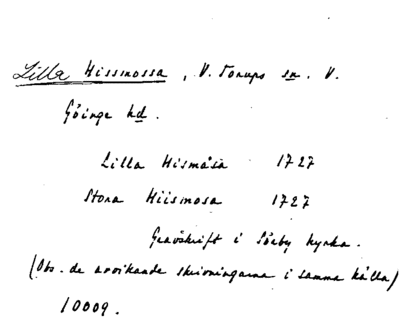 Lilla Hissmossa, V. Torups sn. V.
Göinge hd.
Lilla Hismåsa 1727
Stora Hiismosa 1727
Gravskrift i Sörby kyrka.
(Obs. de avvikande skrivningarna i samma källa)
10009.